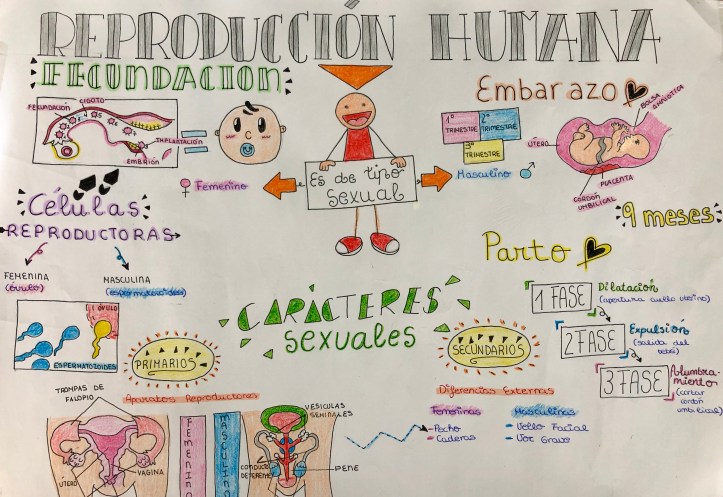 REPRODUCCIÓN HUMANA
FECUNDACION
FECUNDACIÓN
CIGOTO
IMPLANTACIÓN
EMBRIÓN
Es de tipo
sexual
Femenino
Masculino
Embarazo
1º
TRIMESTRE
2º
TRIMESTRE
3º
TRIMESTRE
BOLSA
AMNIOTICA
UTERO
PLACENTA
CORDÓN
UMBILICAL
9 meses
Células
REPRODUCTORAS
FEMENINA
(óvulo)
MASCULINA
(espermatozoides)
1 ÓVULO
ESPERMATOZOIDES
Parto
1 FASE
Dilatación
(apertura cuello uterino)
2 FASE
Expulsión
(salida del
bebé)
3 FASE
Alumbra-
miento
(cortar
cordón
umbilical)
CARÁCTERES
sexuales
PRIMARIOS
Aparatos Reproductores
TROMPAS DE
FALOPIO
ÚTERO
VAGINA
FEMENINO
MASCULINO
VESICULAS
SEMINALES
CONDUCTO
DEFERENTE
PENE
SECUNDARIOS
Diferencias Externas
Femeninas
- Pecho
- Caderas
Masculinas
- Vello Facial
- Voz Grave